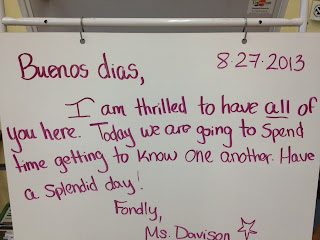 Buenos dias,
8.27.2013
I am thrilled to have all of
you here. Today we are going to spend
time getting to know one another. Have
a splendid day!
Fondly,
Ms. Davison